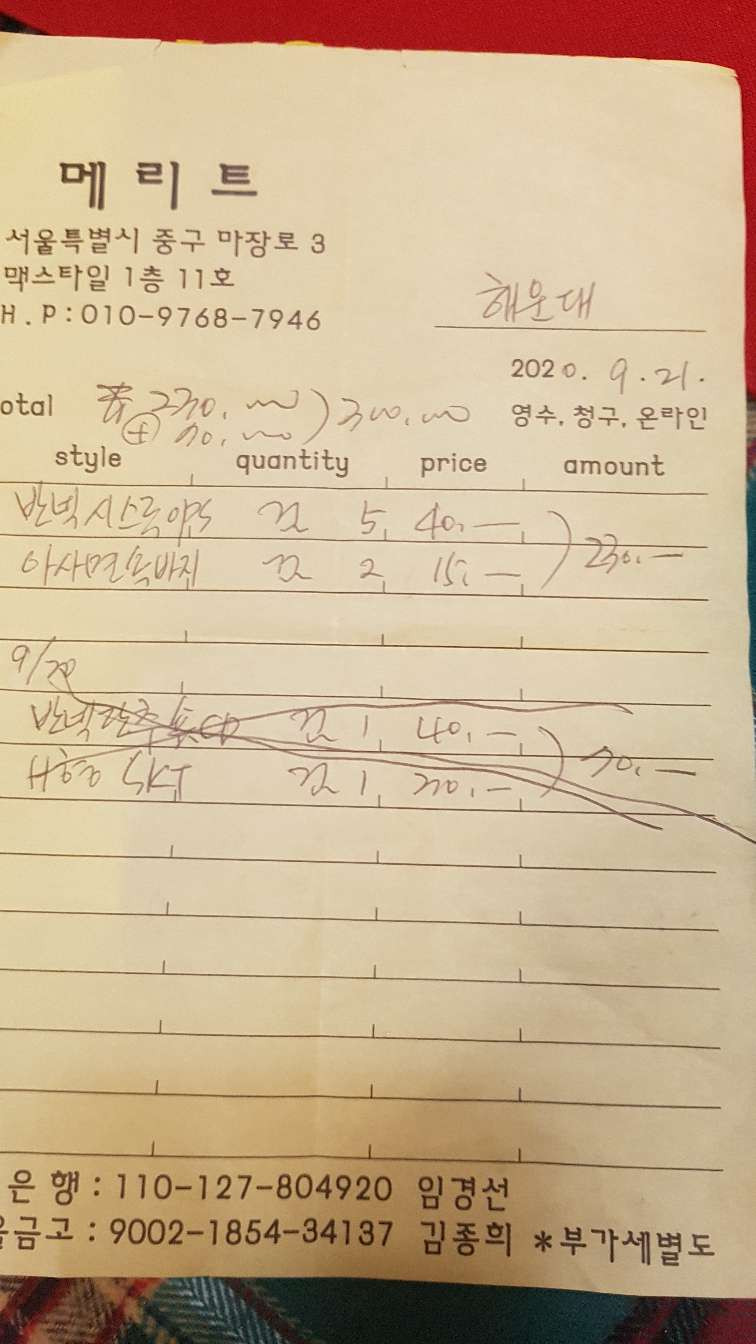 메리트
서울특별시 중구 마장로 3
맥스타일 1층 11호
H.P:010-9768-7946
해운대
2020. 9.21.
otal 230,000 ) 300,000 영수, 청구, 온라인
(+) 70,000
style quantity price amount
반넥시스루 ops 껀 5 40,— ) 230,—
아사면속바지 껀 2 15,—
9/20
반넥 껀 1 40,— ) 70,—
SKJ 껀 1
은 행 : 110-127-804920 임경선
금고 : 9002-1854-34137 김종희 *부가세별도